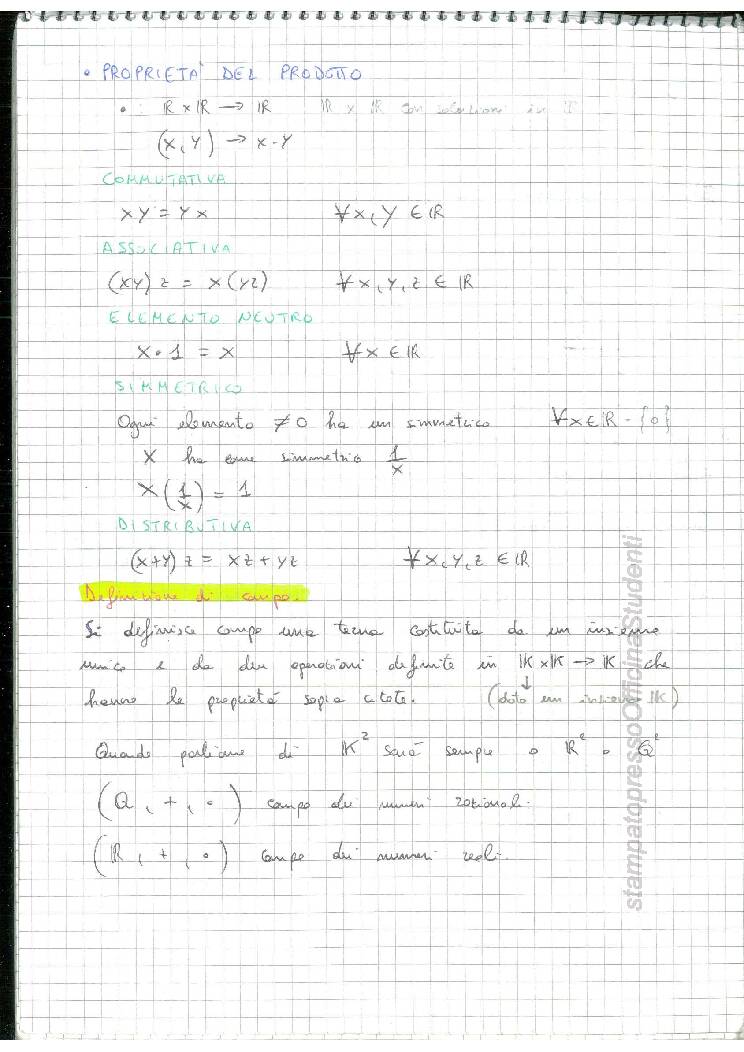 • PROPRIETÀ DEL PRODOTTO
• : ℝ × ℝ → ℝ ℝ × ℝ con soluzioni in
(x, y) → x·y
COMMUTATIVA
xy = yx ∀x, y ∈ ℝ
ASSOCIATIVA
(xy) z = x (yz) ∀x, y, z ∈ ℝ
ELEMENTO NEUTRO
x • 1 = x ∀x ∈ ℝ
SIMMETRICO
Ogni elemento ≠ 0 ha un simmetrico ∀x ∈ ℝ - {0}
X ha come simmetrico 1/x
X (1/x) = 1
DISTRIBUTIVA
(x+y) z = xz + yz ∀x, y, z ∈ ℝ
Definizione di campo.
Si definisce campo una terna costituita da un insieme
unico e da due operazioni definite in 𝕂 × 𝕂 → 𝕂 che
hanno le proprietà sopra citate. ↓ (dato un insieme 𝕂)
Quando parliamo di 𝕂² sarà sempre o ℝ² o ℚ²
(ℚ, +, •) campo dei numeri razionali.
(ℝ, +, •) campo dei numeri reali.
stampatopressoOfficinaStudenti